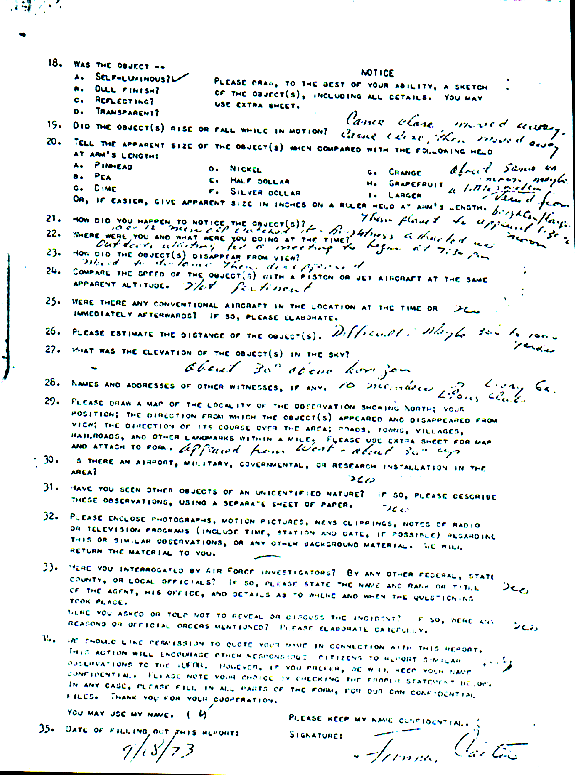 18. WAS THE OBJECT --
A. SELF-LUMINOUS? ✓
B. DULL FINISH?
C. REFLECTING?
D. TRANSPARENT?
NOTICE
PLEASE DRAW, TO THE BEST OF YOUR ABILITY, A SKETCH
OF THE OBJECT(S), INCLUDING ALL DETAILS. YOU MAY
USE EXTRA SHEET.
19. DID THE OBJECT(S) RISE OR FALL WHILE IN MOTION? Came close, moved away.
Came close, then moved away
20. TELL THE APPARENT SIZE OF THE OBJECT(S) WHEN COMPARED WITH THE FOLLOWING HELD
AT ARM'S LENGTH:
A. PINHEAD
B. PEA
C. DIME
D. NICKEL
E. HALF DOLLAR
F. SILVER DOLLAR
G. ORANGE
H. GRAPEFRUIT
I. LARGER
About same as
moon, maybe
a little
OR, IF EASIER, GIVE APPARENT SIZE IN INCHES ON A RULER HELD AT ARM'S LENGTH.
brighter/larger
than planet to apparent size of
moon
21. HOW DID YOU HAPPEN TO NOTICE THE OBJECT(S)?
22. WHERE WERE YOU AND WHAT WERE YOU DOING AT THE TIME?
Outdoors waiting for a meeting to begin at 7:30 pm
23. HOW DID THE OBJECT(S) DISAPPEAR FROM VIEW?
Moved to distance then disappeared
24. COMPARE THE SPEED OF THE OBJECT(S) WITH A PISTON OR JET AIRCRAFT AT THE SAME
APPARENT ALTITUDE. Not pertinent
25. WERE THERE ANY CONVENTIONAL AIRCRAFT IN THE LOCATION AT THE TIME OR
IMMEDIATELY AFTERWARDS? IF SO, PLEASE ELABORATE. No
26. PLEASE ESTIMATE THE DISTANCE OF THE OBJECT(S). Difficult. Maybe 300 to 1000
yards
27. WHAT WAS THE ELEVATION OF THE OBJECT(S) IN THE SKY?
About 30° above horizon
28. NAMES AND ADDRESSES OF OTHER WITNESSES, IF ANY. 10 members Leary Ga.
Lions Club
29. PLEASE DRAW A MAP OF THE LOCALITY OF THE OBSERVATION SHOWING NORTH; YOUR
POSITION; THE DIRECTION FROM WHICH THE OBJECT(S) APPEARED AND DISAPPEARED FROM
VIEW; THE DIRECTION OF ITS COURSE OVER THE AREA; ROADS, TOWNS, VILLAGES,
RAILROADS, AND OTHER LANDMARKS WITHIN A MILE. PLEASE USE EXTRA SHEET FOR MAP
AND ATTACH TO FORM. Appeared from West - about 30° up
30. IS THERE AN AIRPORT, MILITARY, GOVERNMENTAL, OR RESEARCH INSTALLATION IN THE
AREA? No
31. HAVE YOU SEEN OTHER OBJECTS OF AN UNIDENTIFIED NATURE? IF SO, PLEASE DESCRIBE
THESE OBSERVATIONS, USING A SEPARATE SHEET OF PAPER. No
32. PLEASE ENCLOSE PHOTOGRAPHS, MOTION PICTURES, NEWS CLIPPINGS, NOTES OF RADIO
OR TELEVISION PROGRAMS (INCLUDE TIME, STATION AND DATE, IF POSSIBLE) REGARDING
THIS OR SIMILAR OBSERVATIONS, OR ANY OTHER BACKGROUND MATERIAL. WE WILL
RETURN THE MATERIAL TO YOU.
33. WERE YOU INTERROGATED BY AIR FORCE INVESTIGATORS? BY ANY OTHER FEDERAL, STATE
COUNTY, OR LOCAL OFFICIALS? IF SO, PLEASE STATE THE NAME AND RANK OR TITLE
OF THE AGENT, HIS OFFICE, AND DETAILS AS TO WHERE AND WHEN THE QUESTIONING
TOOK PLACE. No
WERE YOU ASKED OR TOLD NOT TO REVEAL OR DISCUSS THE INCIDENT? IF SO, WERE ANY
REASONS OR OFFICIAL ORDERS MENTIONED? PLEASE ELABORATE CAREFULLY. No
WE SHOULD LIKE PERMISSION TO QUOTE YOUR NAME IN CONNECTION WITH THIS REPORT.
THIS ACTION WILL ENCOURAGE OTHER RESPONSIBLE CITIZENS TO REPORT SIMILAR
OBSERVATIONS TO THE. HOWEVER, IF YOU PREFER, WE WILL KEEP YOUR NAME
CONFIDENTIAL. PLEASE NOTE YOUR CHOICE BY CHECKING THE PROPER STATEMENT BELOW.
IN ANY CASE, PLEASE FILL IN ALL PARTS OF THE FORM, FOR OUR OWN CONFIDENTIAL
FILES. THANK YOU FOR YOUR COOPERATION.
YOU MAY USE MY NAME. ( )
PLEASE KEEP MY NAME CONFIDENTIAL. (
35. DATE OF FILLING OUT THIS REPORT:
9/18/73
SIGNATURE:
Jimmy Carter